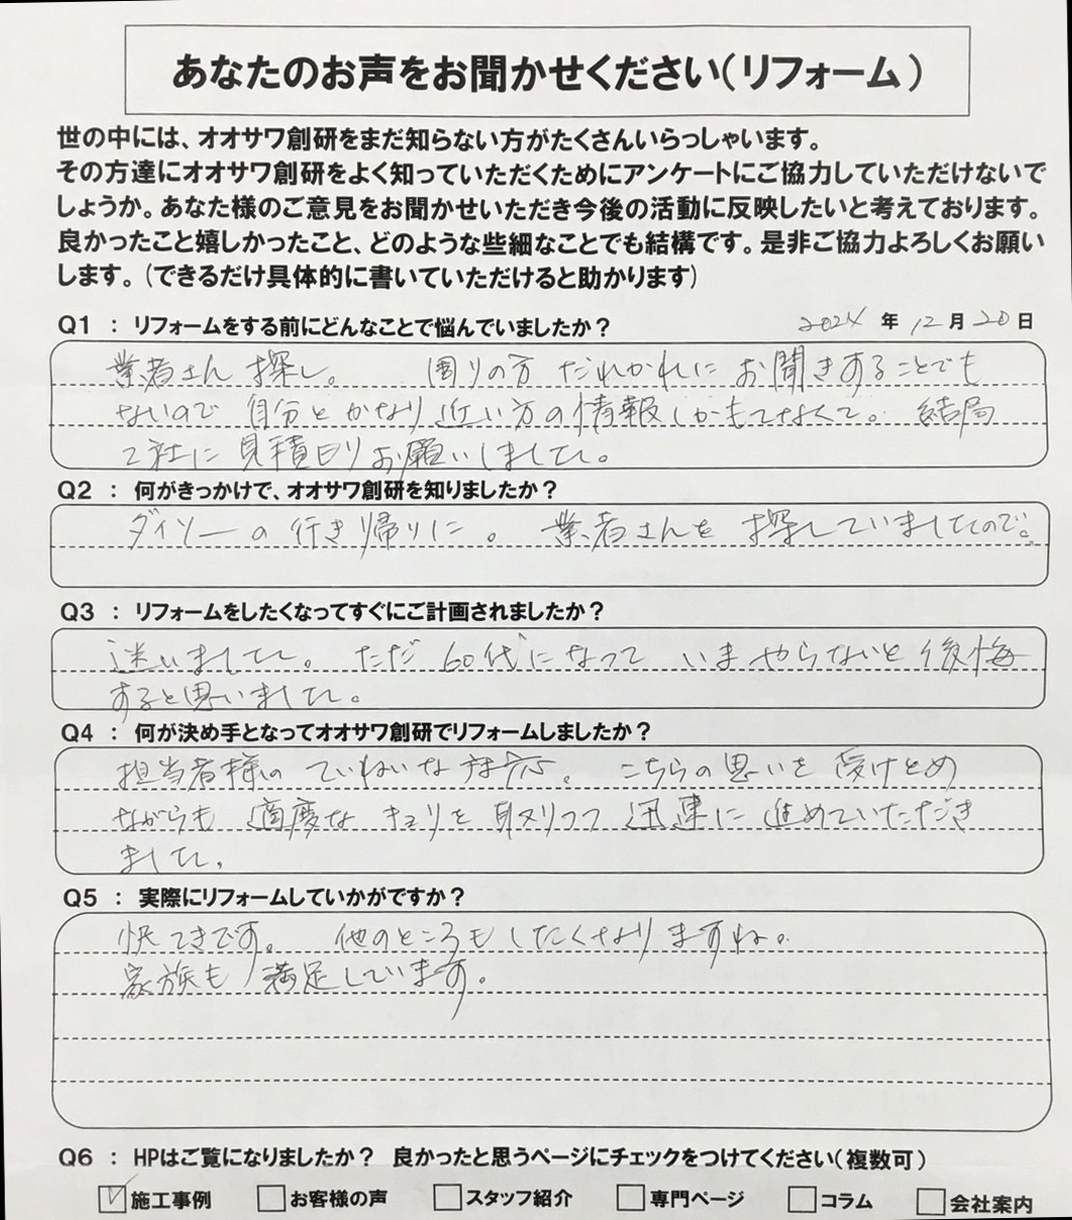 あなたのお声をお聞かせください(リフォーム)
世の中には、オオサワ創研をまだ知らない方がたくさんいらっしゃいます。
その方達にオオサワ創研をよく知っていただくためにアンケートにご協力していただけないで
しょうか。あなた様のご意見をお聞かせいただき今後の活動に反映したいと考えております。
良かったこと嬉しかったこと、どのような些細なことでも結構です。是非ご協力よろしくお願い
します。(できるだけ具体的に書いていただけると助かります)
Q1 : リフォームをする前にどんなことで悩んでいましたか? 2024年12月20日
業者さん探し。 周りの方だれかれにお聞きすることでも
ないので 自分とかなり近い方の情報しかもてなくて。結局
2社に見積もりお願いしました。
Q2 : 何がきっかけで、オオサワ創研を知りましたか?
ダイソーの行き帰りに。 業者さんを探していましたので。
Q3 : リフォームをしたくなってすぐにご計画されましたか?
迷いました。ただ60代になって いまやらないと後悔
すると思いました。
Q4 : 何が決め手となってオオサワ創研でリフォームしましたか?
担当者様のていねいな対応。こちらの思いを受けとめ
ながらも 適度なキョリを取りつつ迅速に進めていただき
ました。
Q5 : 実際にリフォームしていかがですか?
快てきです。 他のところもしたくなりますね。
家族も満足しています。
Q6 : HPはご覧になりましたか? 良かったと思うページにチェックをつけてください(複数可)
☑施工事例 □お客様の声 □スタッフ紹介 □専門ページ □コラム □会社案内